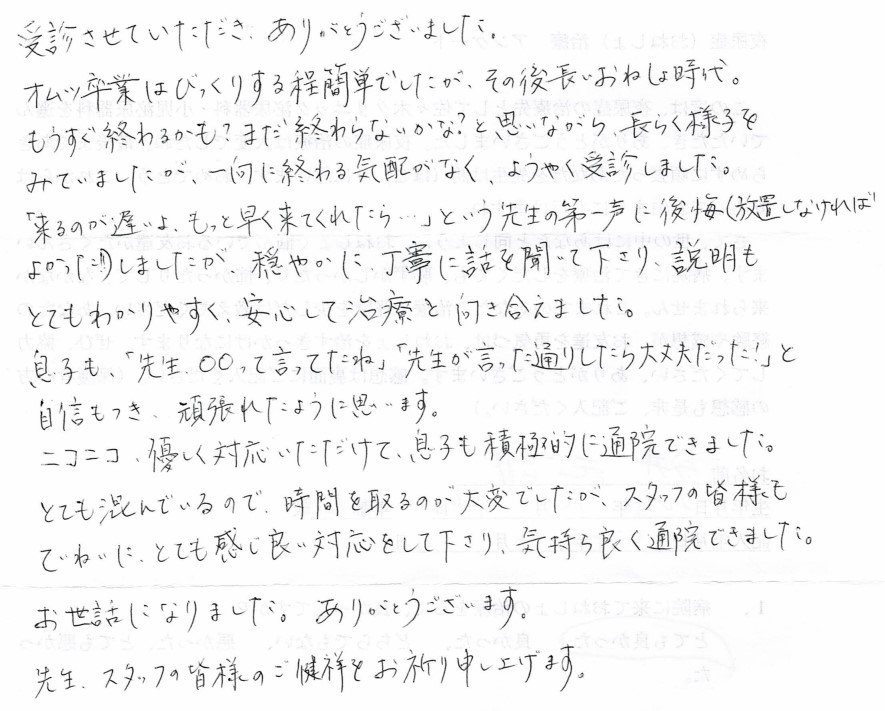 受診させていただき、ありがとうございました。
オムツ卒業はびっくりする程簡単でしたが、その後長いおねしょ時代。
もうすぐ終わるかも?まだ終わらないかな?と思いながら、長らく様子を
みていましたが、一向に終わる気配がなく、ようやく受診しました。
「来るのが遅いよ、もっと早く来てくれたら…」という先生の第一声に後悔(放置しなければ
よかった!!)しましたが、穏やかに丁寧に話を聞いて下さり、説明も
とてもわかりやすく、安心して治療と向き合えました。
息子も、「先生、〇〇って言ってたね」「先生が言った通りしたら大丈夫だった!」と
自信もつき、頑張れたように思います。
ニコニコ、優しく対応いただけて、息子も積極的に通院できました。
とても混んでいるので、時間を取るのが大変でしたが、スタッフの皆様も
ていねいに、とても感じ良い対応をして下さり、気持ち良く通院できました。
お世話になりました。ありがとうございます。
先生、スタッフの皆様のご健祥をお祈り申し上げます。